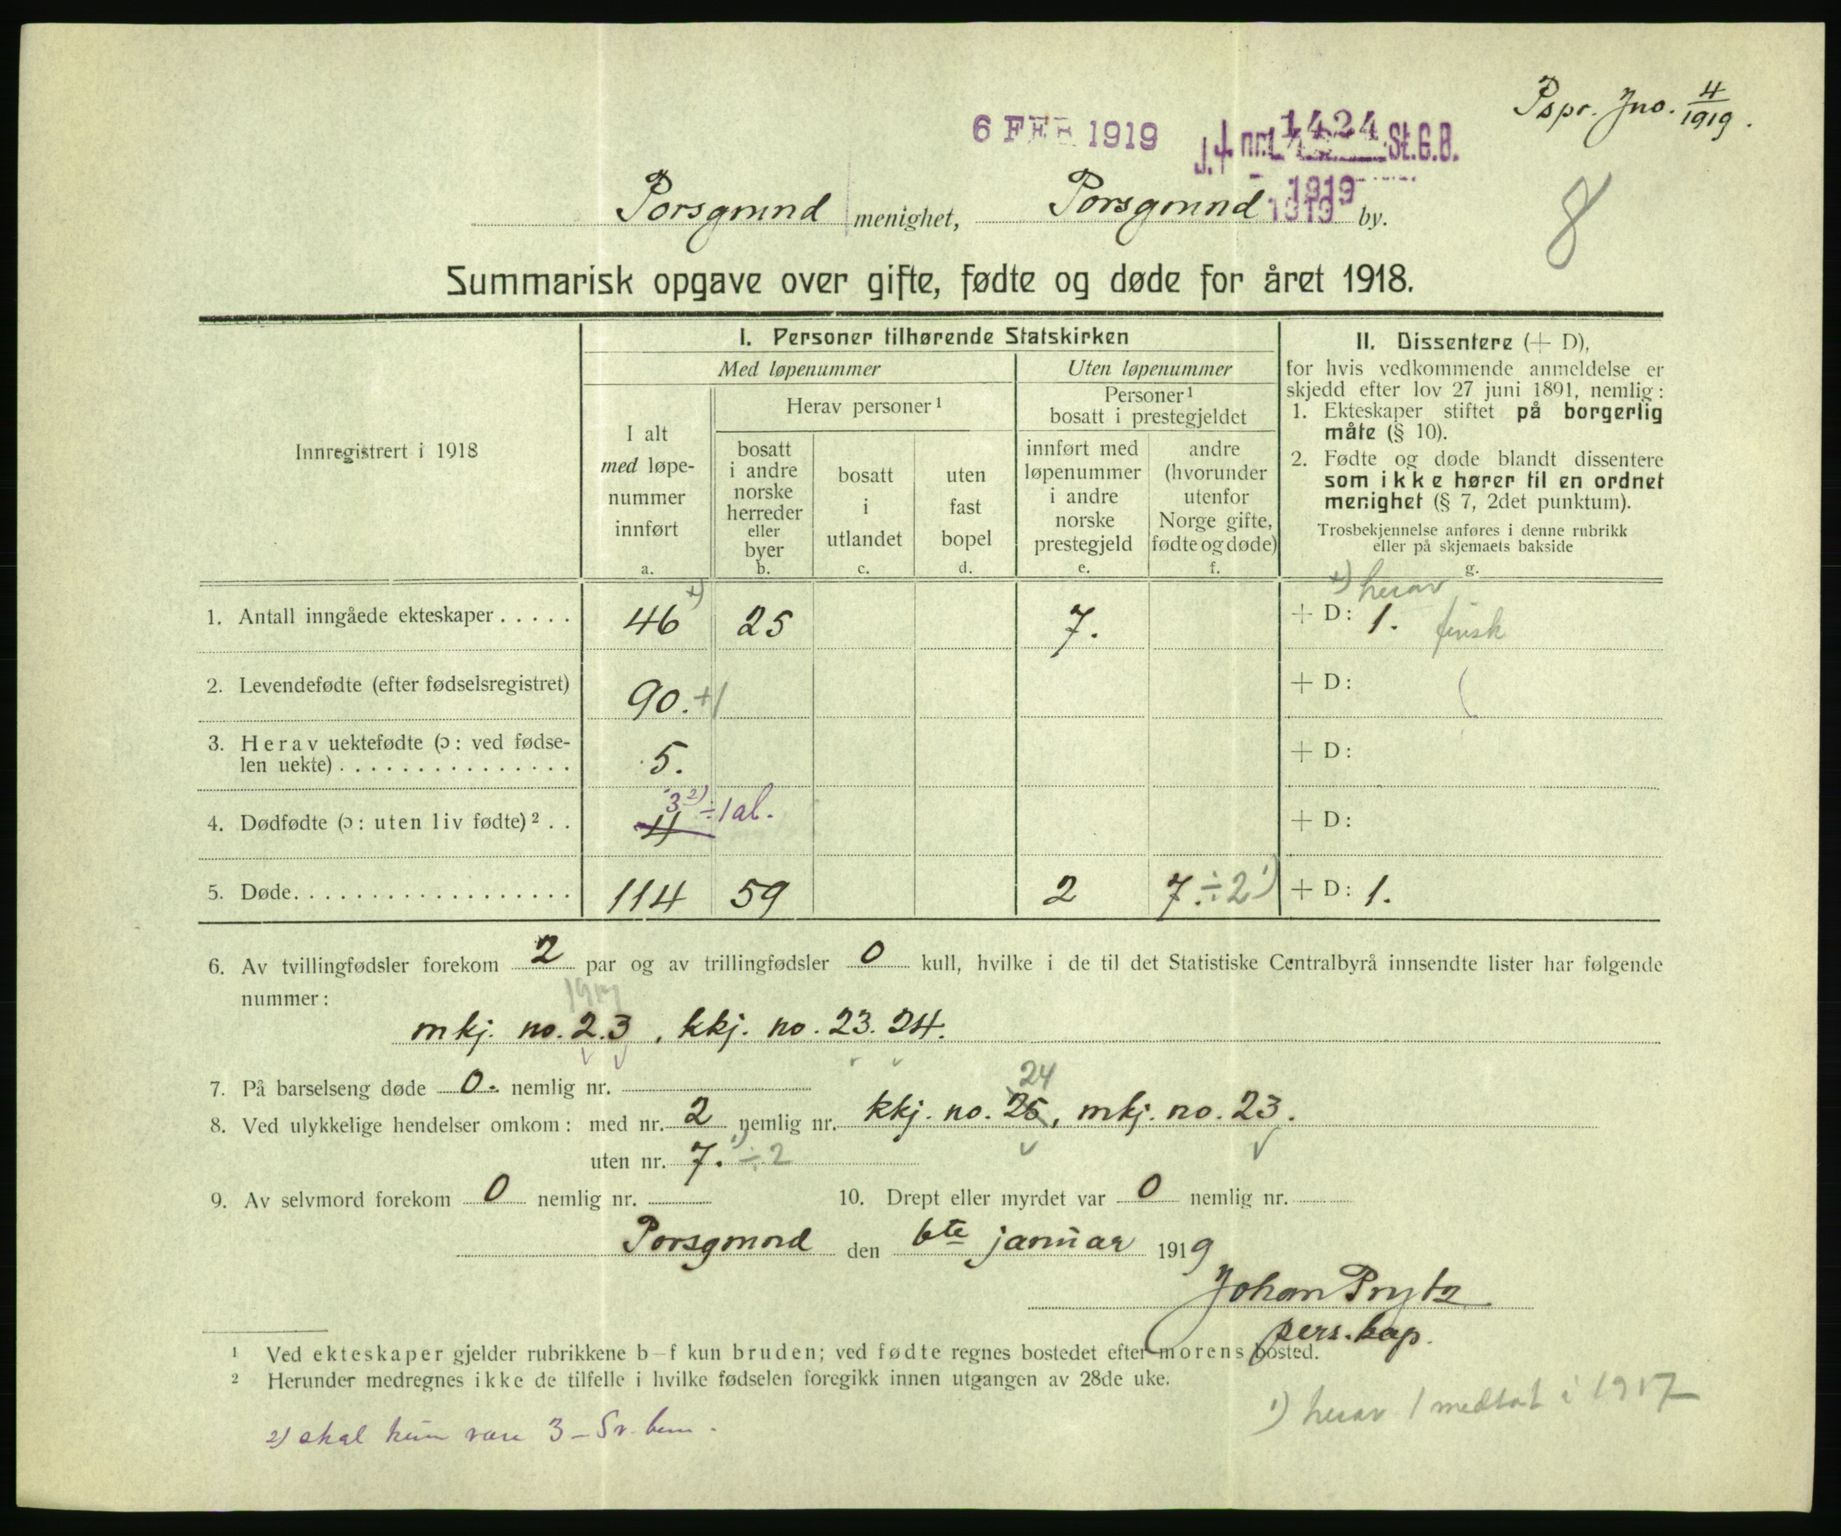 Pspr. Jno. 4/1919.
6 FEB 1919
J. nr. 1424 St.C.B.
1919
8
Porsgrund menighet, Porsgrund by.
Summarisk opgave over gifte, fødte og døde for året 1918.
Innregistrert i 1918
I. Personer tilhørende Statskirken
Med løpenummer
Uten løpenummer
I alt
med løpe-
nummer
innført
a.
Herav personer ¹
bosatt
i andre
norske
herreder
eller
byer
b.
bosatt
i
utlandet
c.
uten
fast
bopel
d.
Personer ¹
bosatt i prestegjeldet
innført med
løpenummer
i andre
norske
prestegjeld
e.
andre
(hvorunder
utenfor
Norge gifte,
fødte og døde)
f.
II. Dissentere (+ D),
for hvis vedkommende anmeldelse er
skjedd efter lov 27 juni 1891, nemlig:
1. Ekteskaper stiftet på borgerlig
måte (§ 10).
2. Fødte og døde blandt dissentere
som ikke hører til en ordnet
menighet (§ 7, 2det punktum).
Trosbekjennelse anføres i denne rubrikk
eller på skjemaets bakside
g.
x) herav
1. Antall inngåede ekteskaper . . . . . 46 x) 25 7. + D: 1. finsk
2. Levendefødte (efter fødselsregistret) 90. +1 + D:
3. Herav uektefødte (ɔ: ved fødse-
len uekte) . . . . . . . . . . . . . . . 5. + D:
3 2) ÷ 1 al.
4. Dødfødte (ɔ: uten liv fødte) ² . . 4 + D:
5. Døde. . . . . . . . . . . . . . . . . . 114 59 2 7. ÷ 2 ¹) + D: 1.
6. Av tvillingfødsler forekom 2 par og av trillingfødsler 0 kull, hvilke i de til det Statistiske Centralbyrå innsendte lister har følgende
nummer:
1917
mkj. no. 2.3, kkj. no. 23. 24.
7. På barselseng døde 0. nemlig nr.
24
8. Ved ulykkelige hendelser omkom: med nr. 2 nemlig nr. kkj. no. 25, mkj. no. 23.
uten nr. 7. ¹) ÷ 2
9. Av selvmord forekom 0 nemlig nr. 10. Drept eller myrdet var 0 nemlig nr.
Porsgrund den 6te januar 1919
Johan Prytz
pers. kap.
¹ Ved ekteskaper gjelder rubrikkene b–f kun bruden; ved fødte regnes bostedet efter morens bosted.
² Herunder medregnes ikke de tilfelle i hvilke fødselen foregikk innen utgangen av 28de uke.
¹) herav 1 medtat i 1917
2) skal kun være 3 –